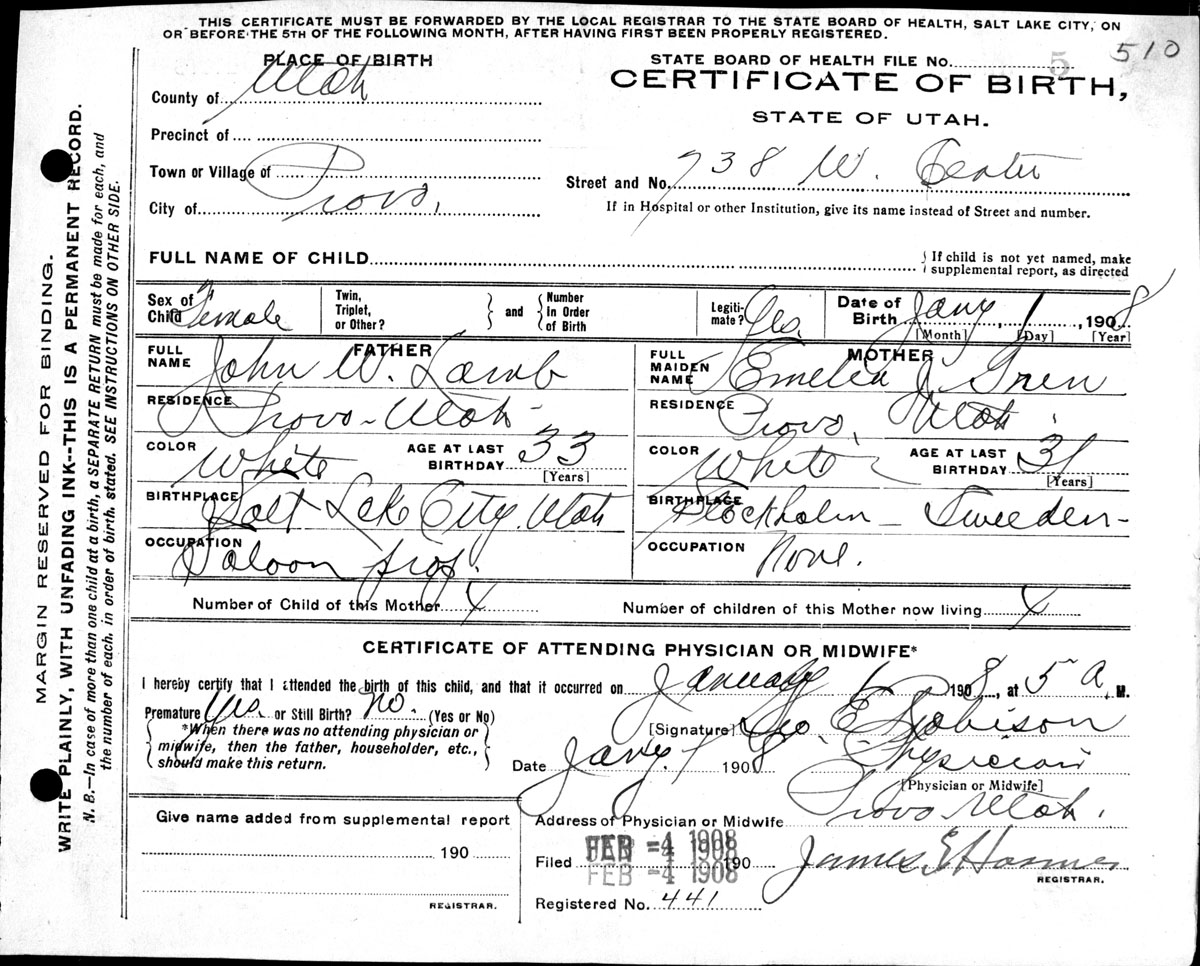 THIS CERTIFICATE MUST BE FORWARDED BY THE LOCAL REGISTRAR TO THE STATE BOARD OF HEALTH, SALT LAKE CITY, ON
OR BEFORE THE 5TH OF THE FOLLOWING MONTH, AFTER HAVING FIRST BEEN PROPERLY REGISTERED.
PLACE OF BIRTH
STATE BOARD OF HEALTH FILE No. 5 510
CERTIFICATE OF BIRTH,
STATE OF UTAH.
County of Utah
Precinct of
Town or Village of
City of Provo,
Street and No. 738 W. Center
If in Hospital or other Institution, give its name instead of Street and number.
FULL NAME OF CHILD
If child is not yet named, make
supplemental report, as directed
Sex of Child Female
Twin, Triplet, or Other?
and
Number In Order of Birth
Legiti-mate? Yes.
Date of Birth Jany 1, 1908
[Month] [Day] [Year]
FATHER
FULL NAME John W. Lamb
RESIDENCE Provo-Utah-
COLOR White AGE AT LAST BIRTHDAY 33
[Years]
BIRTHPLACE Salt Lake City. Utah
OCCUPATION Saloon prop.
MOTHER
FULL MAIDEN NAME Emelia J.
RESIDENCE Provo, Utah.
COLOR White AGE AT LAST BIRTHDAY 31
[Years]
BIRTHPLACE Stockholm - Sweeden-
OCCUPATION None.
Number of Child of this Mother 4
Number of children of this Mother now living 4
CERTIFICATE OF ATTENDING PHYSICIAN OR MIDWIFE*
I hereby certify that I attended the birth of this child, and that it occurred on January 1 1908, at 5 a. M.
Premature Yes. or Still Birth? no. (Yes or No)
*When there was no attending physician or
midwife, then the father, householder, etc.,
should make this return.
[Signature] Geo. E. Robison
Date Jany. 1 1908
Physician
[Physician or Midwife]
Address of Physician or Midwife Provo Utah.
Give name added from supplemental report
190
REGISTRAR.
Filed FEB -4 1908 190
FEB -4 1908
James E
REGISTRAR.
Registered No. 441
MARGIN RESERVED FOR BINDING.
WRITE PLAINLY, WITH UNFADING INK--THIS IS A PERMANENT RECORD.
N. B.—In case of more than one child at a birth, a SEPARATE RETURN must be made for each, and
the number of each, in order of birth, stated. SEE INSTRUCTIONS ON OTHER SIDE.